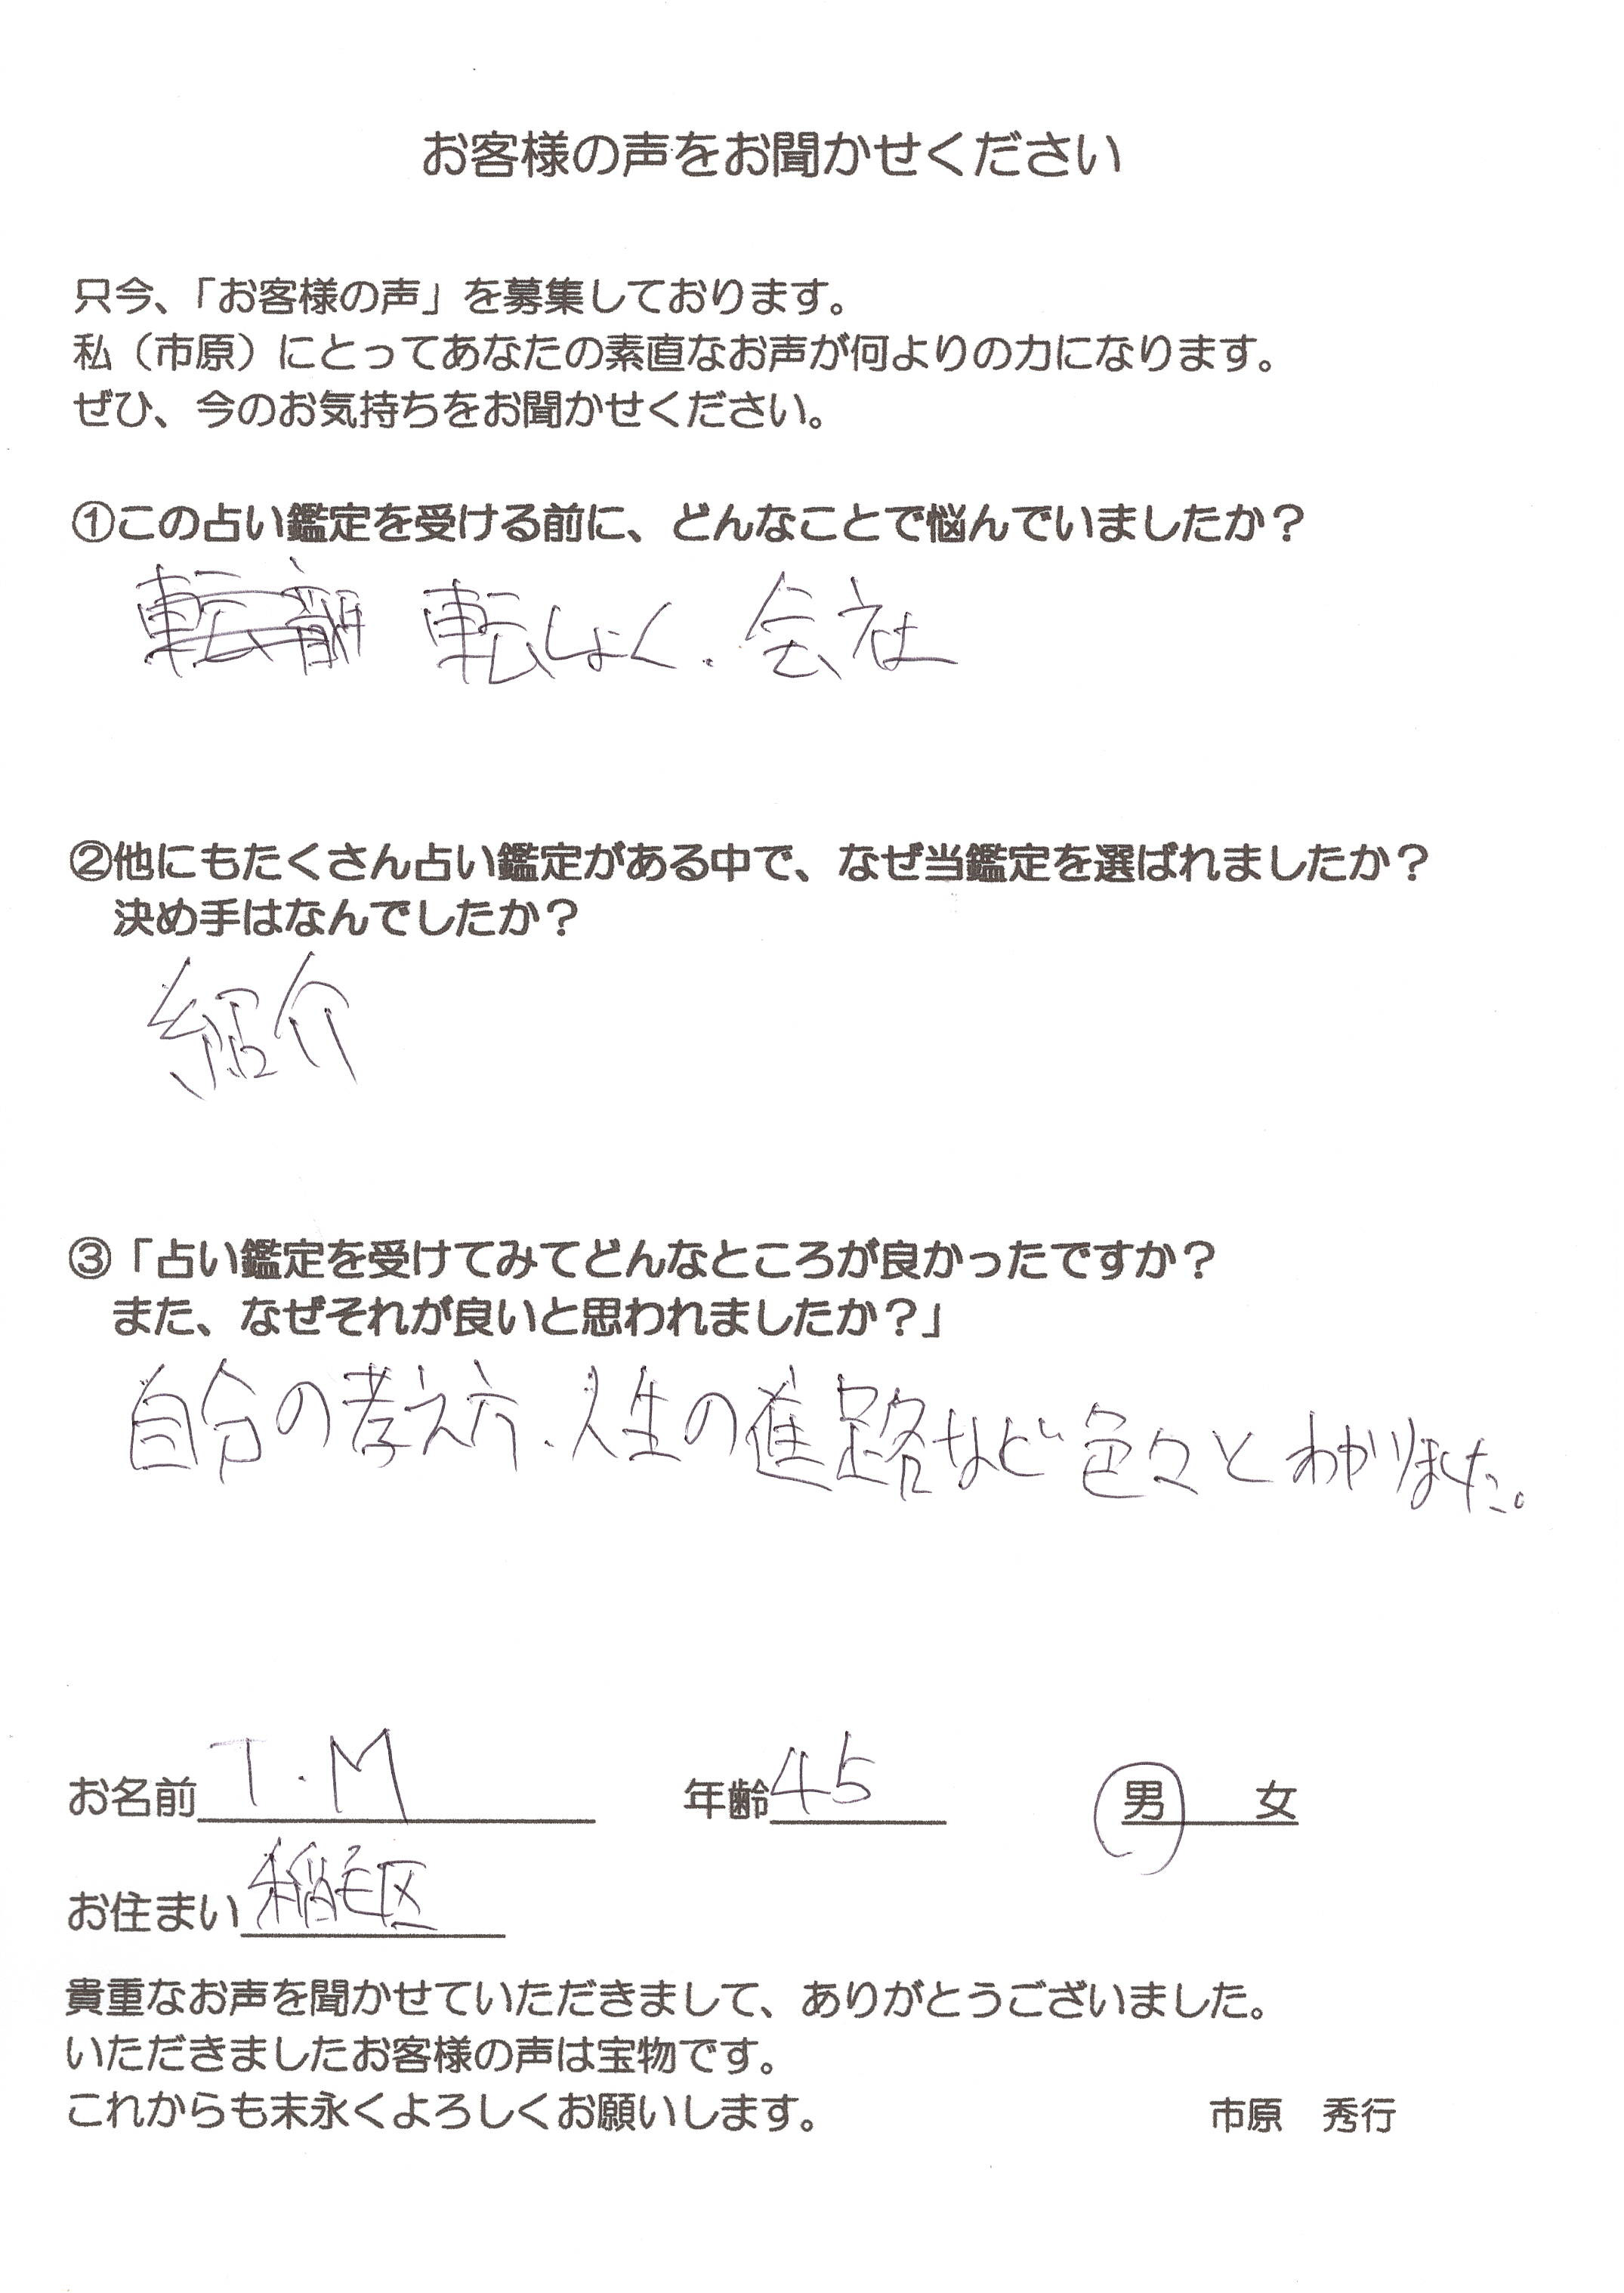 お客様の声をお聞かせください
只今、「お客様の声」を募集しております。
私（市原）にとってあなたの素直なお声が何よりの力になります。
ぜひ、今のお気持ちをお聞かせください。
①この占い鑑定を受ける前に、どんなことで悩んでいましたか？
転しょく．会社
②他にもたくさん占い鑑定がある中で、なぜ当鑑定を選ばれましたか？
決め手はなんでしたか？
紹介
③「占い鑑定を受けてみてどんなところが良かったですか？
また、なぜそれが良いと思われましたか？」
自分の考え方、人生の進路など色々とわかりました。
お名前 T.M 年齢 45 男 女
お住まい 稲毛区
貴重なお声を聞かせていただきまして、ありがとうございました。
いただきましたお客様の声は宝物です。
これからも末永くよろしくお願いします。 市原 秀行